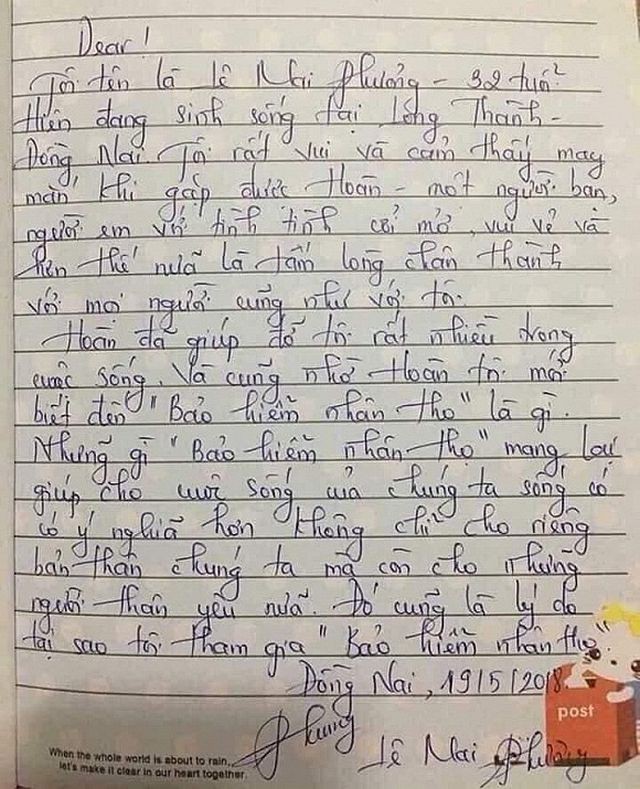 Dear!
Tôi tên là Lê Mai Phương - 32 tuổi
Hiện đang sinh sống tại Long Thành -
Đồng Nai. Tôi rất vui và cảm thấy may
mắn khi gặp được Hoàn - một người bạn,
người em với tình tình cởi mở, vui vẻ và
hơn thế nữa là tấm lòng chân thành
với mọi người cũng như với tôi.
Hoàn đã giúp đỡ tôi rất nhiều trong
cuộc sống. Và cũng nhờ Hoàn tôi mới
biết đến "Bảo hiểm nhân thọ" là gì.
Những gì "Bảo hiểm nhân thọ" mang lại
giúp cho cuộc sống của chúng ta sống có
có ý nghĩa hơn không chỉ cho riêng
bản thân chúng ta mà còn cho những
người thân yêu nữa. Đó cũng là lý do
tại sao tôi tham gia "Bảo hiểm nhân thọ"
Đồng Nai, 19/5/2018.
Phương
Lê Mai Phương
post
When the whole world is about to rain,
let's make it clear in our heart together.